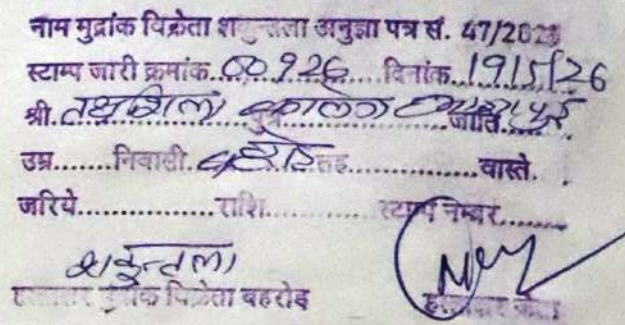 नाम मुद्रांक विक्रेता शकुन्तला अनुज्ञा पत्र सं. 47/2023
स्टाम्प जारी क्रमांक 00926 दिनांक 19/5/26
श्री. तक्षशिला कालेज पुत्र जाति
उम्र........निवासी. तह...............वास्ते.
जरिये............. राशि............. स्टाम्प नम्बर........
शकुन्तला
हस्ताक्षर मुद्रांक विक्रेता बहरोड